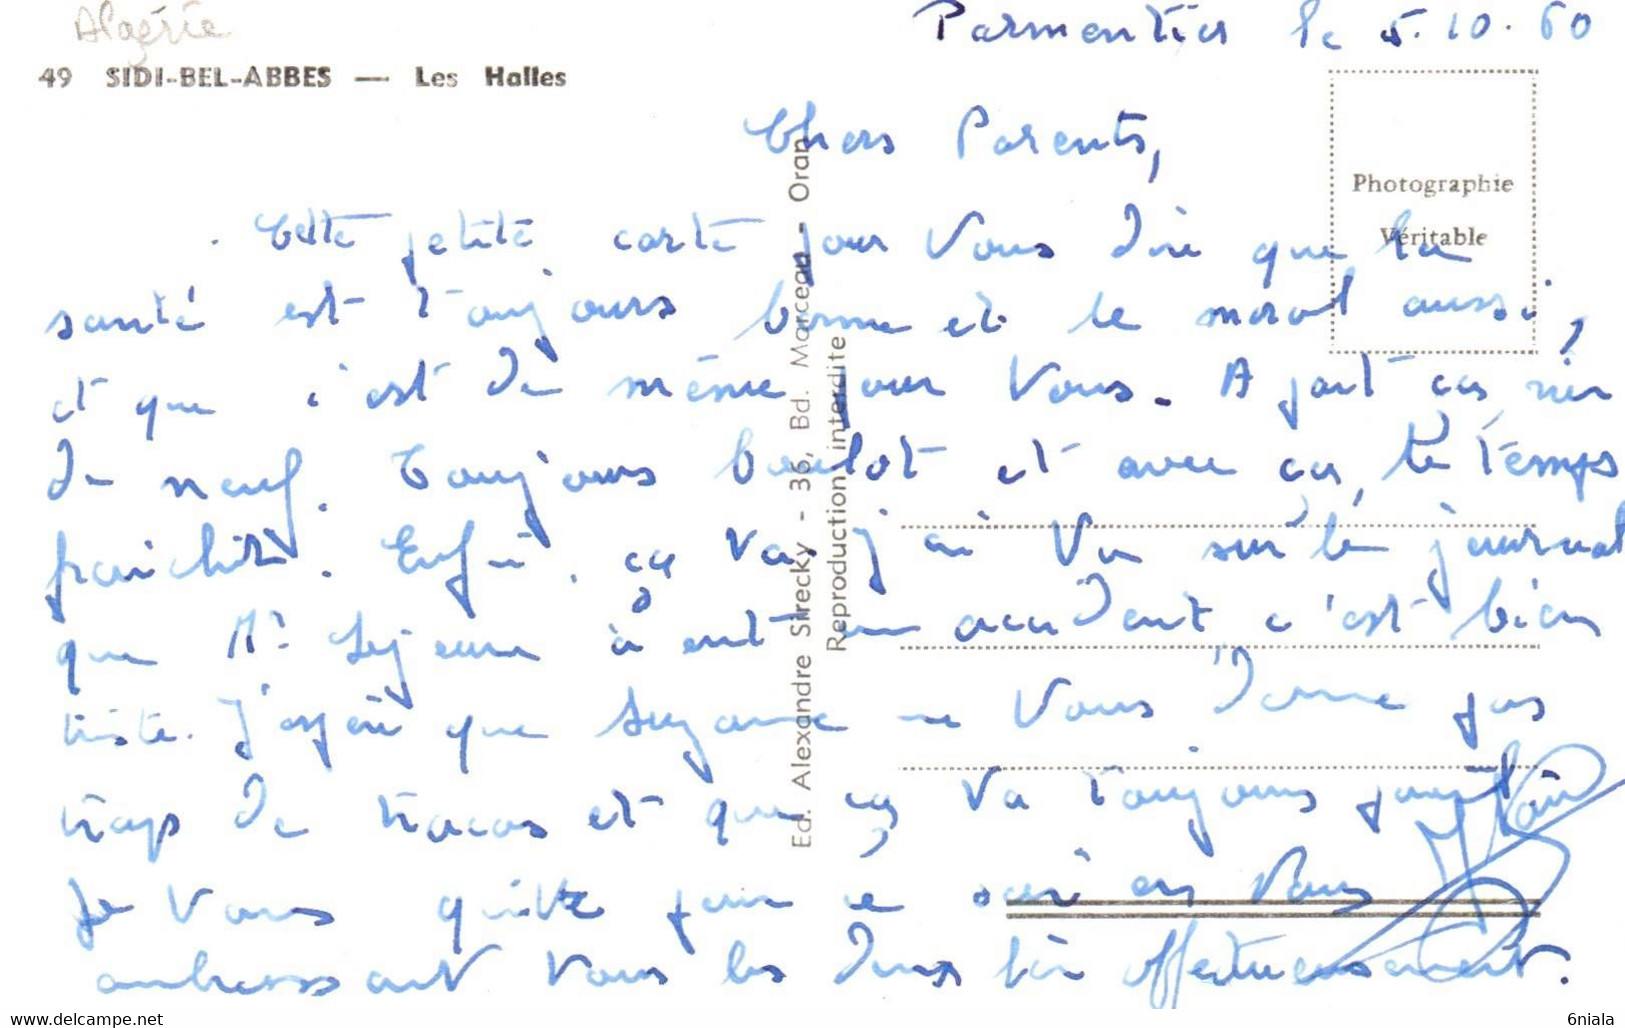 Algérie
Parmentier le 5.10.60
49 SIDI-BEL-ABBES — Les Halles
Chers Parents,
Photographie
Véritable
Cette petite carte pour Vous dire que la
santé est toujours bonne et le moral aussi,
et que c'est de même pour Vous. A part ça, rien
de neuf. Toujours boulot et avec ça, le temps
fraichit. Enfin, ça va. J'ai Vu sur le journal
que Mr Lejeune à eut un accident c'est bien
triste. J'espère que Suzanne ne Vous donne pas
trop de tracas et que ça Va toujours
Je Vous quitte pour ce soir en Vous
embrassant Vous les deux bien affectueusement.
Ed. Alexandre Sirecky - 36, Bd. Marceau - Oran
Reproduction interdite
www.delcampe.net
6niala